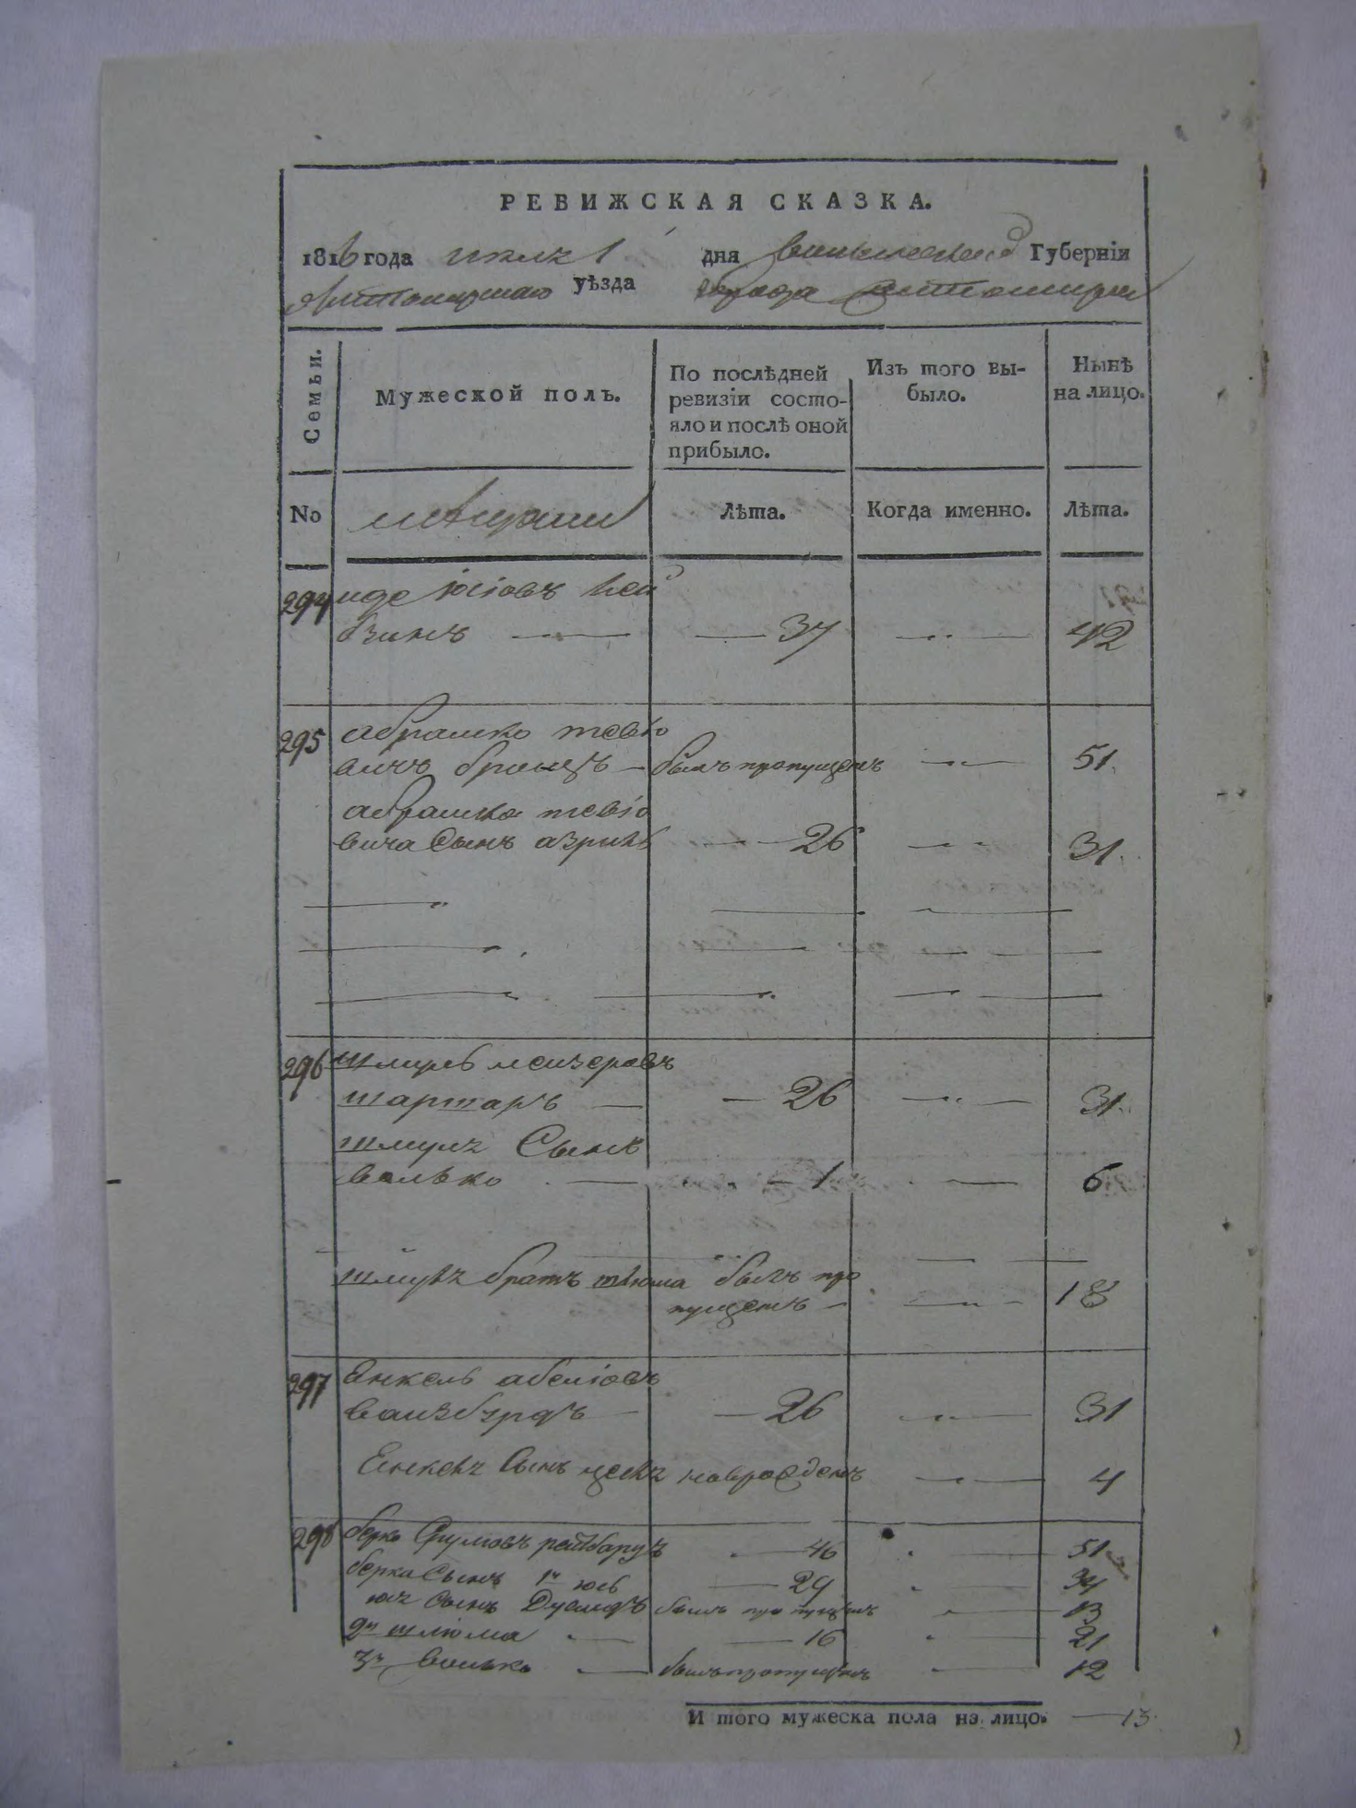 РЕВИЖСКАЯ СКАЗКА.
1816 года июля 1 дня Губерніи
уѣзда города
Семьи.
Мужеской полъ.
По послѣдней ревизіи состо-
яло и послѣ оной прибыло.
Изъ того вы-
было.
Нынѣ
на лицо.
No
Лѣта.
Когда именно.
Лѣта.
294 иде Іосіовъ
37 42
295 абрамко тевіо
вичъ былъ пропущенъ 51
абрамка тевіо
вича Сынъ азриль 26 31
296 шмуль лейзеровъ
шартаръ 26 31
шмуля Сынъ
волько 1 6
шмуля братъ былъ про
пущенъ 18
297 Енкель абеліовъ
вайзбурдъ 26 31
Енкеля Сынъ новорожденъ 4
298 берко Сруліовъ 46 51
берка Сынъ 1й іось 29 34
Сынъ былъ пропущенъ 13
2й шлиома 16 21
3й волько былъ пропущенъ 12
И того мужеска пола на лицо. 13